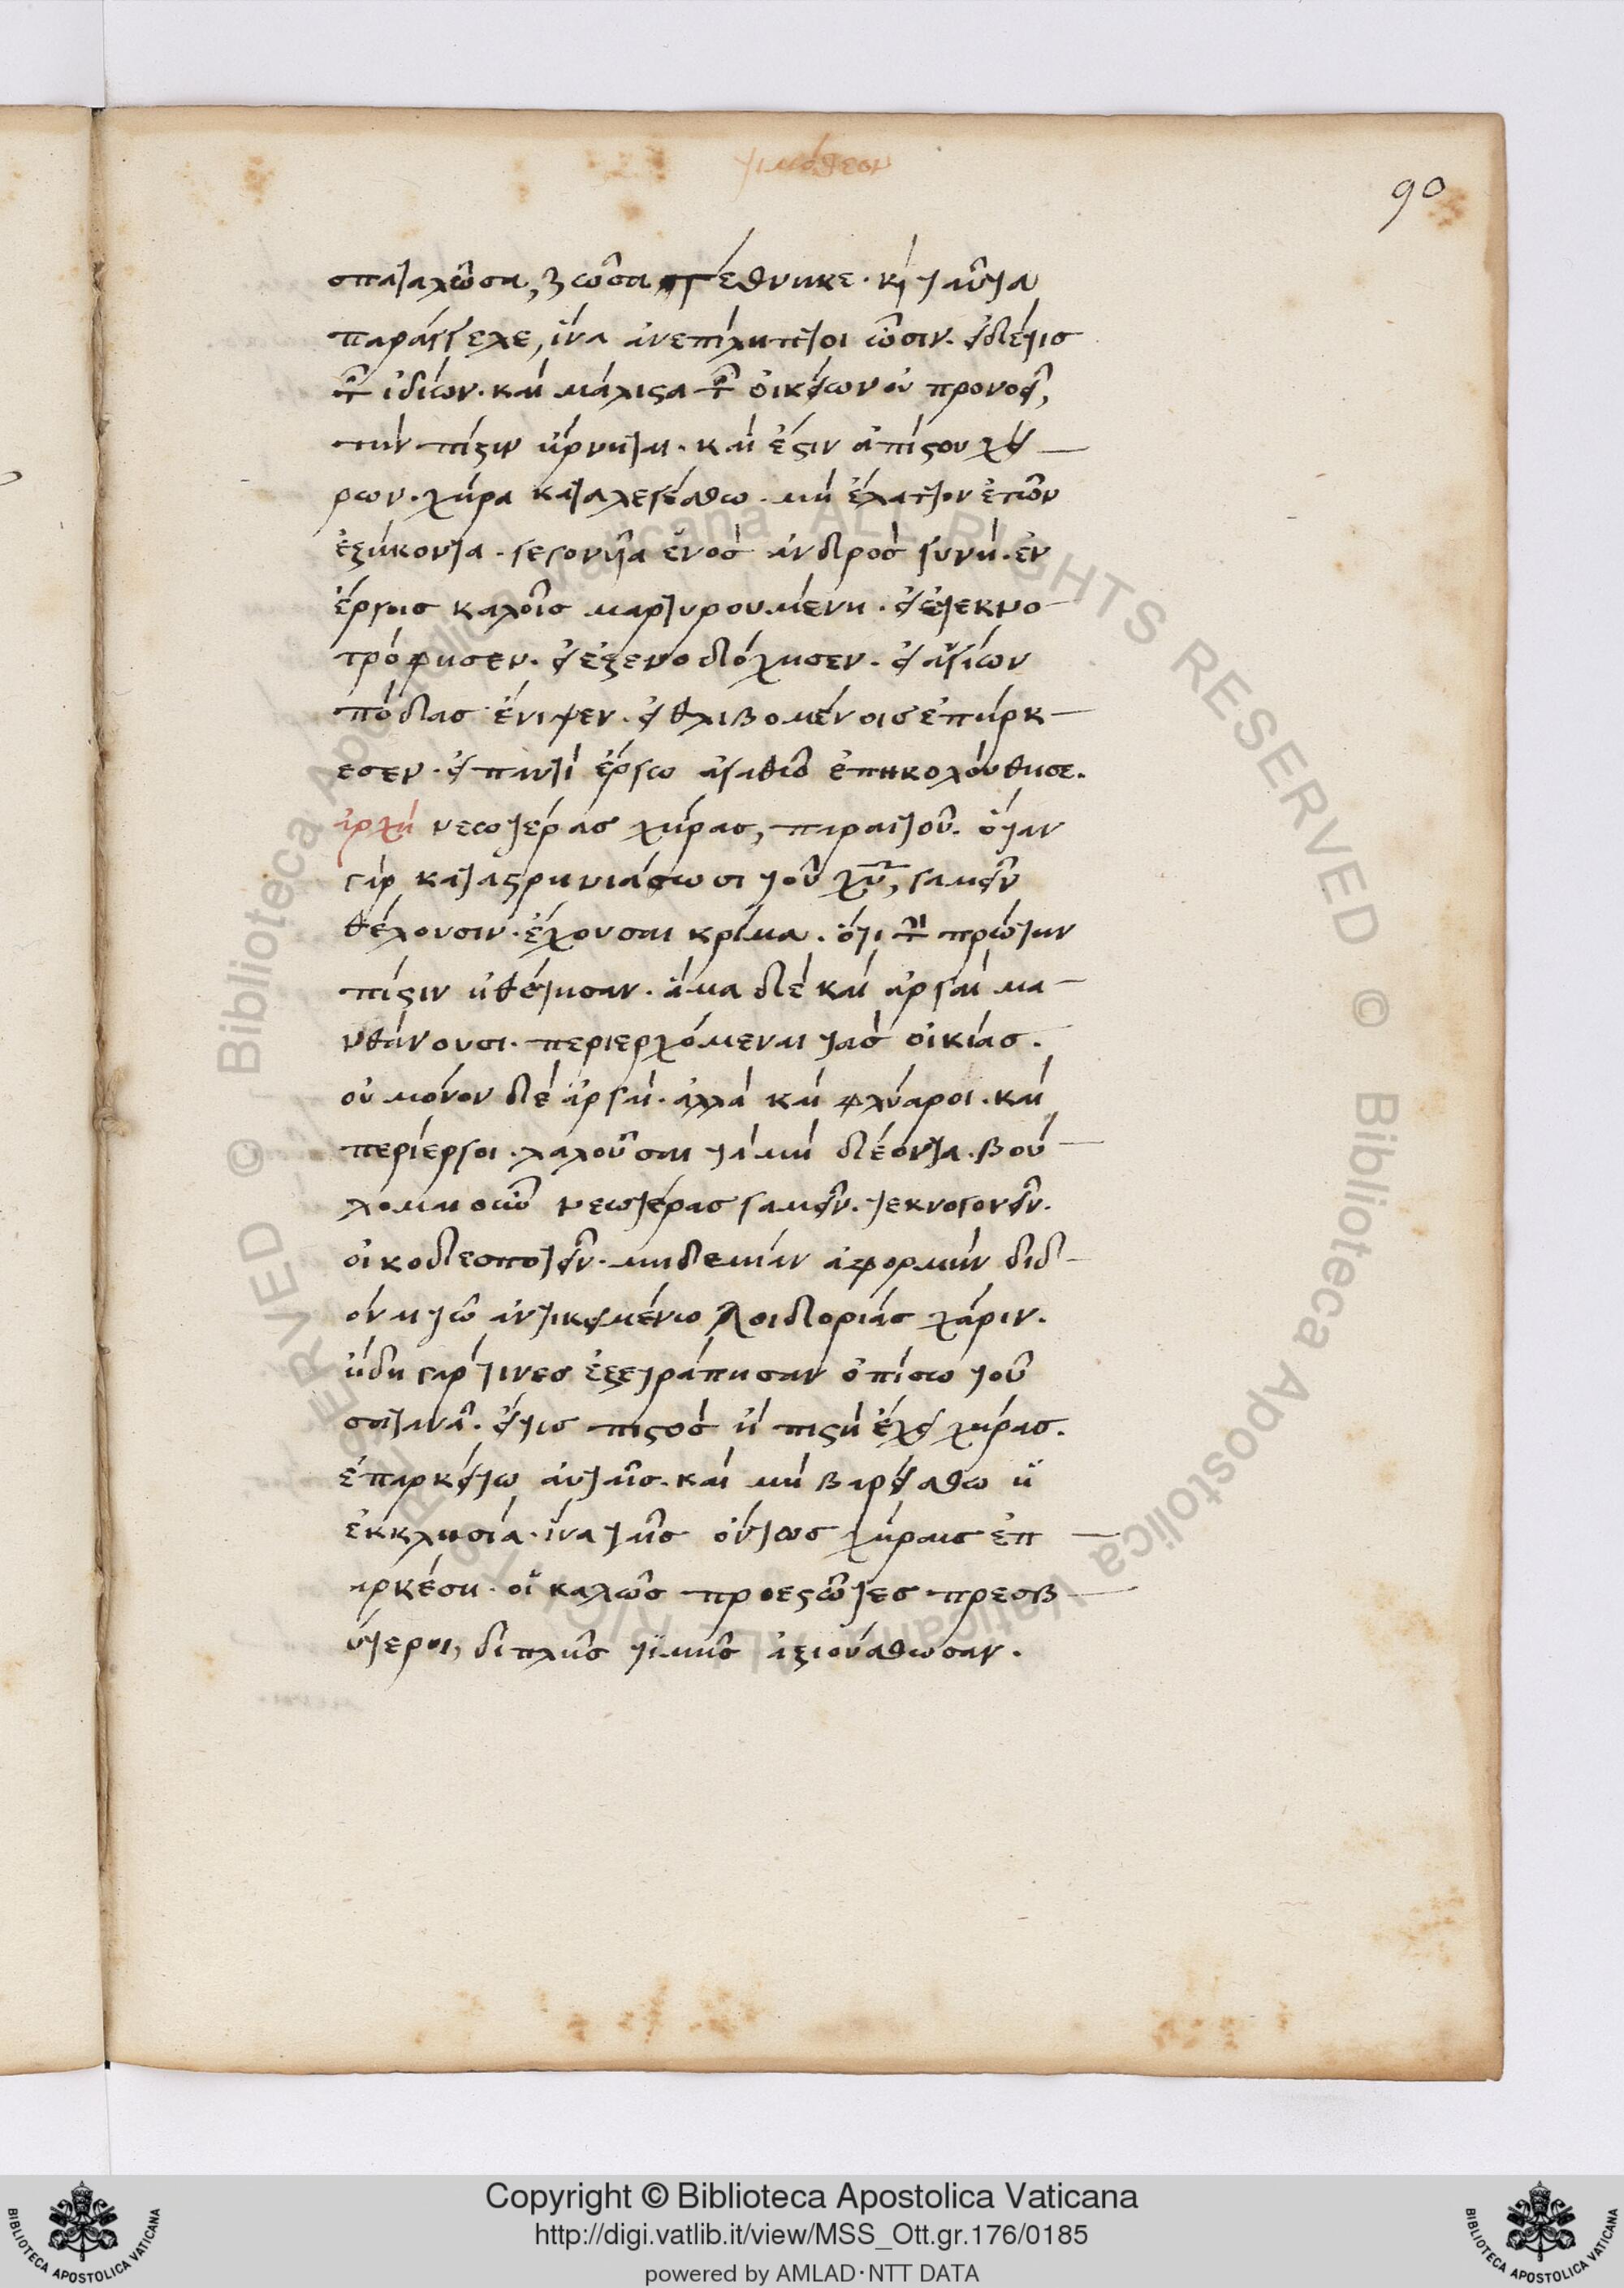 τιμόθεον
90
σπαταλῶσα, ζῶσα τέθνηκε. κ ταῦτα
παράγγελε, ἵνα ἀνεπίληπτοι ὦσιν. εἰ δέ τις
τῶν ἰδίων. καὶ μάλιστα τῶν οἰκείων οὐ προνοεῖ,
τὴν πίστιν ἤρνηται. καὶ ἔστιν ἀπίστου χεί
ρων. χήρα καταλεγέσθω. μὴ ἔλαττον ἐτῶν
ἑξήκοντα. γεγονυῖα ἑνὸς ἀνδρὸς γυνή. ἐν
ἔργοις καλοῖς μαρτυρουμένη. εἰ ἐτεκνο
τρόφησεν. εἰ ἐξενοδόχησεν. εἰ ἁγίων
πόδας ἔνιψεν. εἰ θλιβομένοις ἐπήρκ
εσεν. εἰ παντὶ ἔργω ἀγαθῶ ἐπηκολούθησε.
ἀρχὴ νεωτέρας χήρας, παραιτοῦ. ὅταν
γὰρ καταστρηνιάσωσι τοῦ χυ, γαμεῖν
θέλουσιν. ἔχουσαι κρίμα. ὅτι τὴν πρώτην
πίστιν ἠθέτησαν. ἅμα δὲ καὶ ἀργαὶ μα
νθάνουσι. περιερχόμεναι τὰς οἰκίας.
οὐ μόνον δὲ ἀργαὶ. ἀλλὰ καὶ φλύαροι. καὶ
περίεργοι. λαλοῦσαι τὰ μὴ δέοντα. βού
λομαι οὖν νεωτέρας γαμεῖν. τεκνογονεῖν.
οἰκοδεσποτεῖν. μηδεμίαν ἀφορμὴν διδ
όναι τῶ ἀντικειμένω λοιδορίας χάριν.
ἤδη γάρ τινες ἐξετράπησαν ὀπίσω τοῦ
σατανᾶ. εἴ τις πιστὸς ἢ πιστὴ ἔχει χήρας.
ἐπαρκείτω αὐταῖς. καὶ μὴ βαρείσθω ἡ
ἐκκλησία. ἵνα ταῖς ὄντως χήραις ἐπ
αρκέση. οἱ καλῶς προεστῶτες πρεσβ
ύτεροι, διπλῆς τιμῆς ἀξιούσθωσαν.
Copyright © Biblioteca Apostolica Vaticana
http://digi.vatlib.it/view/MSS_Ott.gr.176/0185
powered by AMLAD·NTT DATA